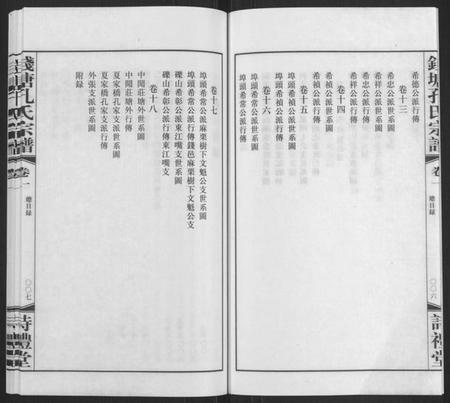 錢塘孔氏宗譜
卷一
總目錄
〇〇六
詩禮堂
希德公派行傳
卷十三
希忠公派世系圖
希忠公派行傳
希祥公派世系圖
希祥公派行傳
卷十四
希楨公派世系圖
希楨公派行傳
卷十五
埠頭希楨公派世系圖
埠頭希楨公派行傳
卷十六
埠頭希常公派世系圖
埠頭希常公派行傳
卷十七
埠頭希常公派麻栗樹下文魁公支世系圖
埠頭希常公派行傳錢邑麻栗樹下文魁公支
礫山希彰公派東江嘴支世系圖
礫山希彰公派行傳東江嘴支
卷十八
中閘莊塘外世系圖
中閘莊塘外行傳
夏家橋孔家支派世系圖
夏家橋孔家支派行傳
外張支派世系圖
附錄
錢塘孔氏宗譜
卷一
總目錄
〇〇七
詩禮堂